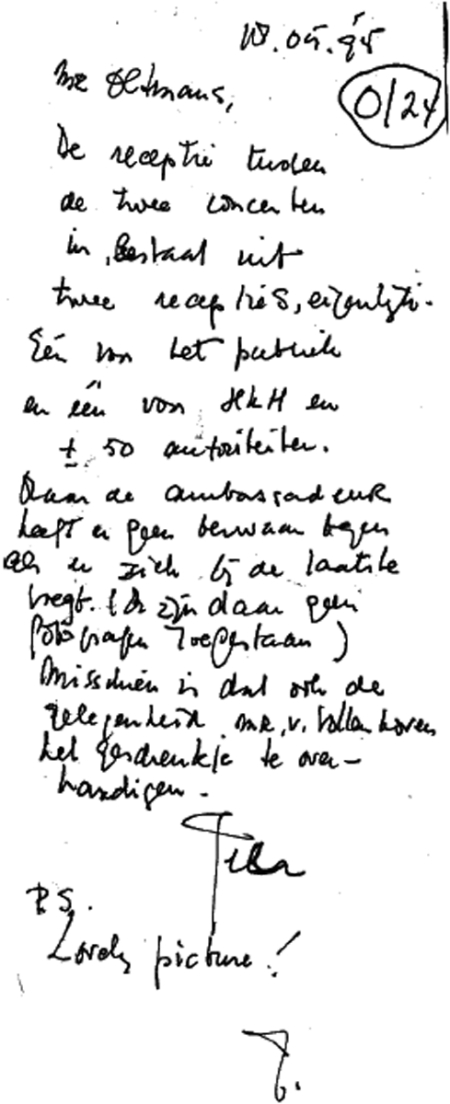 10.05.'95
O/24
Mr Oltmans,
De receptie tussen
de twee concerten
in, bestaat uit
twee recepties, eigenlijk.
Eén van het publiek
en één van HKH en
± 50 autoriteiten.
Maar de ambassadeur
heeft er geen bezwaar tegen
als u zich bij de laatste
voegt. (Er zijn daar geen
fotografen toegestaan)
Misschien is dat ook de
gelegenheid mr. v. Vollenhoven
het geschenkje te over-
handigen.
P.S.
Lovely picture!